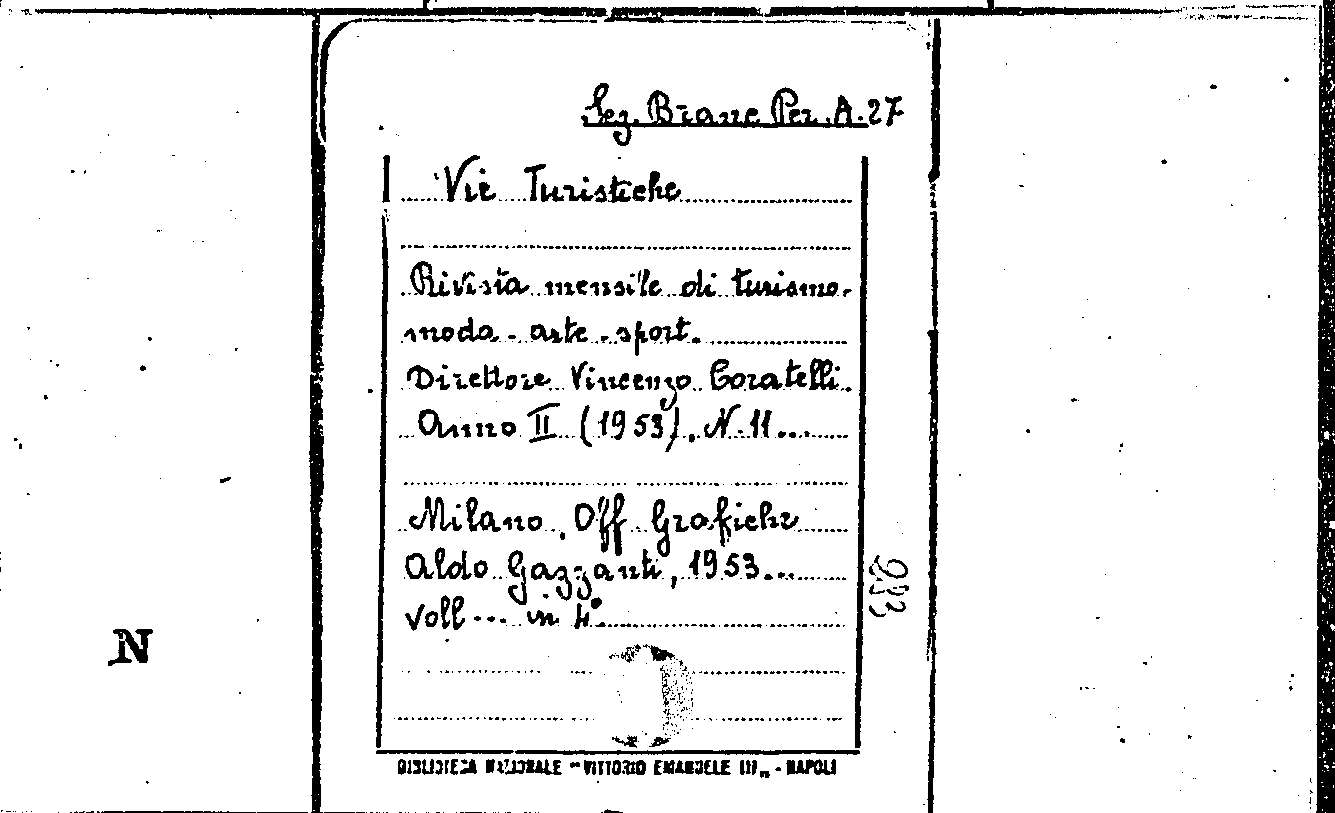 Sez. Branc Per. A. 27
Vie Turistiche
Rivista mensile di turismo-
moda - arte - sport.
Direttore Vincenzo Coratelli.
Anno II (1953), N. 11...
Milano, Off Grafiche
Aldo Gazzanti, 1953...
voll... in 4°.
N
BIBLIOTECA NAZIONALE "VITTORIO EMANUELE III" - NAPOLI